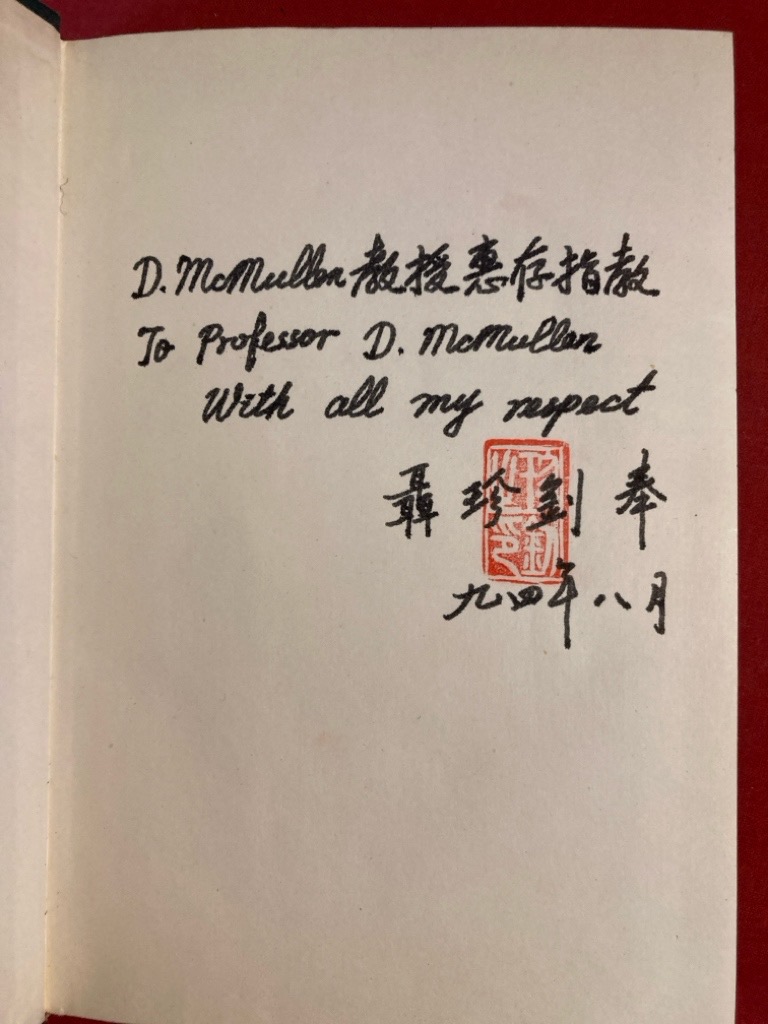 D. McMullen 教授惠存指教
To Professor D. McMullen
With all my respect
聶 珍 釗 奉
九四年八月